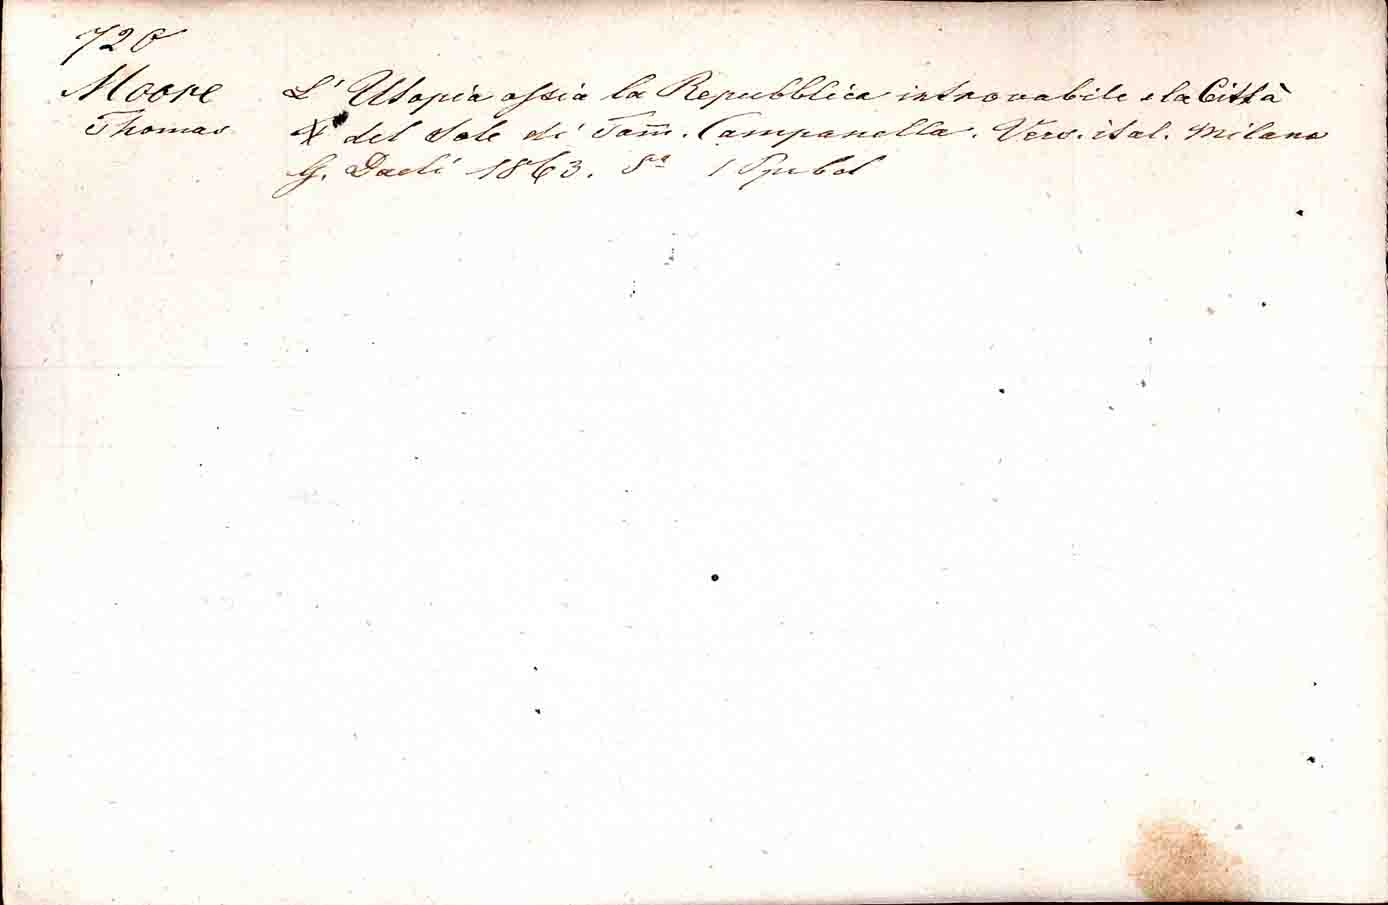 720
Moore L' Utopia ossia la Repubblica introvabile e la Città
Thomas del Sole di Tom̄. Campanella. Vers. ital. Milano
G. Daeli 1863. 8° 1